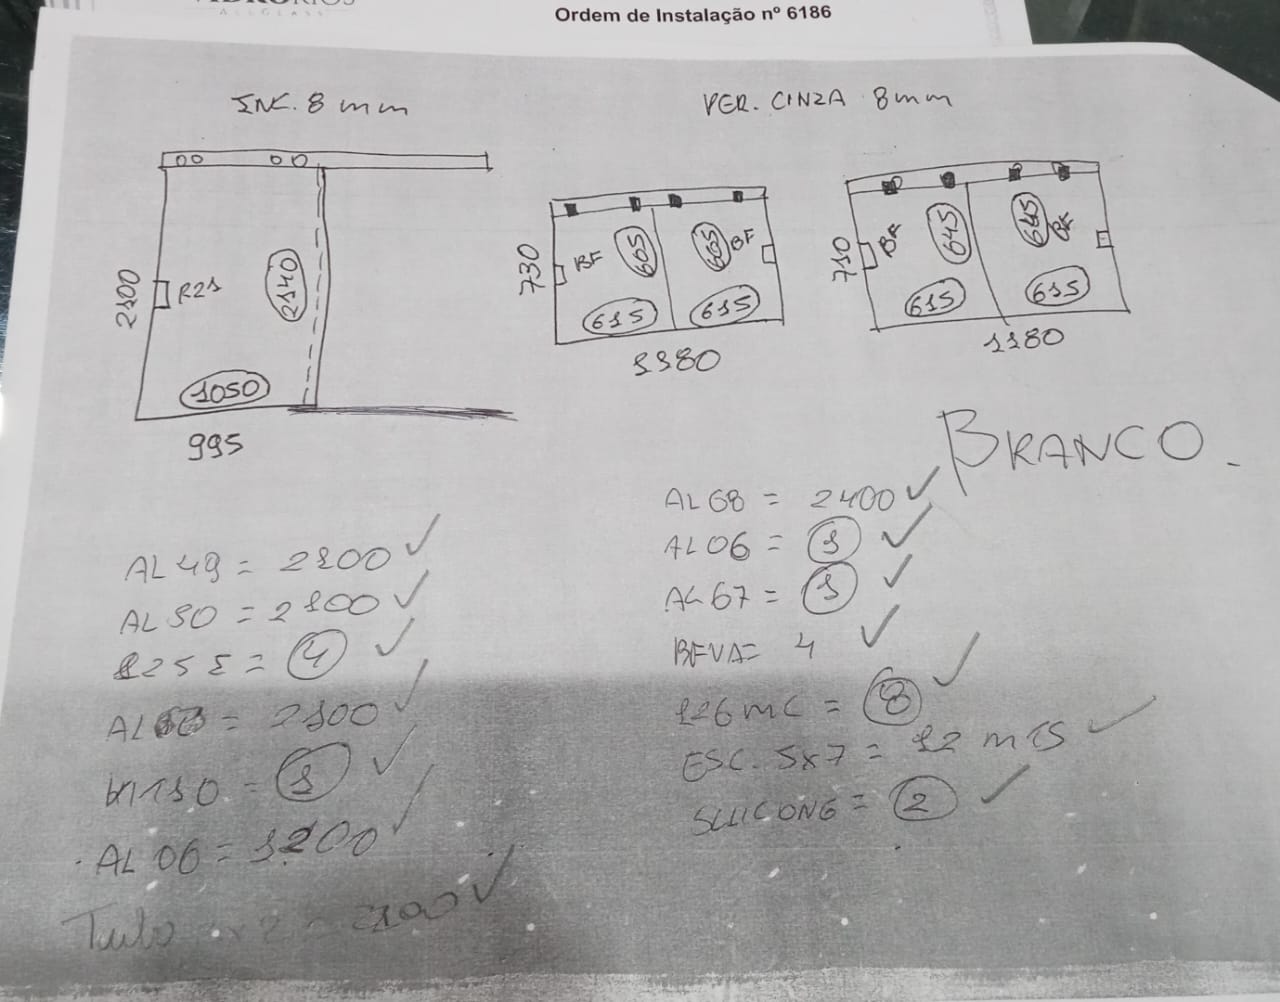 Ordem de Instalação nº 6186
INC. 8 mm
PER. CINZA 8mm
2100
R21
2140
1050
995
730
BF
605
605
BF
615
615
1180
710
BF
645
645
BF
615
615
1180
BRANCO.
AL 49 = 2100
AL 50 = 2100
125 E = 4
= 2100
KIT 50 = 1
AL 06 = 1200
Tubo
2100
AL 68 = 2400
AL 06 = 1
AL 67 = 1
BFVA= 4
126 MC = 8
ESC. 5x7 = 12 mts
SILICONE = 2